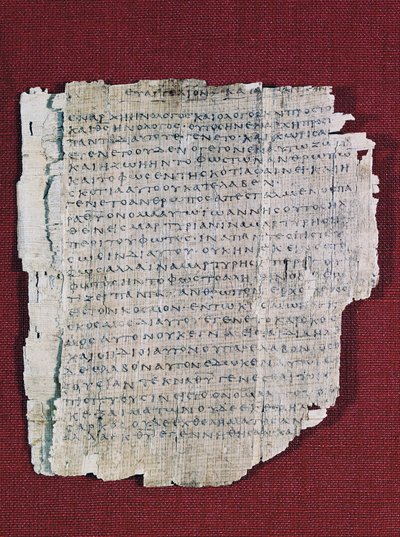 ΕΥΑΓΓΕΛΙΟΝ ΚΑΤΑ
ΕΝ ΑΡΧΗ ΗΝ Ο ΛΟΓΟΣ ΚΑΙ Ο ΛΟΓΟΣ ΗΝ ΠΡΟΣ ΤΟ
ΚΑΙ ΘΣ ΗΝ Ο ΛΟΓΟΣ ΟΥΤΟΣ ΗΝ ΕΝ ΑΡΧΗ ΠΡΟΣ
ΠΑΝΤΑ ΔΙ ΑΥΤΟΥ ΕΓΕΝΕΤΟ ΚΑΙ ΧΩΡΙΣ Α
ΕΓΕΝΕΤΟ ΟΥΔΕΝ Ο ΓΕΓΟΝΕΝ ΕΝ ΑΥΤΩ ΖΩ
ΚΑΙ Η ΖΩΗ ΗΝ ΤΟ ΦΩΣ ΤΩΝ ΑΝΘΡΩΠΩ
ΚΑΙ ΤΟ ΦΩΣ ΕΝ ΤΗ ΣΚΟΤΙΑ ΦΑΙΝΕΙ ΚΑΙ Η
ΣΚΟΤΙΑ ΑΥΤΟ ΟΥ ΚΑΤΕΛΑΒΕΝ
ΕΓΕΝΕΤΟ ΑΝΘΡΩΠΟΣ ΑΠΕΣΤΑΛΜΕΝΟΣ ΠΑ
ΡΑ ΘΥ ΟΝΟΜΑ ΑΥΤΩ ΙΩΑΝΝΗΣ ΟΥΤΟΣ ΗΛ
ΘΕΝ ΕΙΣ ΜΑΡΤΥΡΙΑΝ ΙΝΑ ΜΑΡΤΥΡΗΣΗ
ΠΕΡΙ ΤΟΥ ΦΩΤΟΣ ΙΝΑ ΠΑΝΤΕΣ ΠΙΣΤΕΥ
ΣΩΣΙΝ ΔΙ ΑΥΤΟΥ ΟΥΚ ΗΝ ΕΚΕΙΝΟΣ ΤΟ
ΦΩΣ ΑΛΛ ΙΝΑ ΜΑΡΤΥΡΗΣΗ ΠΕΡΙ
ΗΝ ΤΟ ΦΩΣ ΤΟ ΑΛΗΘΙΝΟΝ Ο ΦΩ
ΤΙΖΕΙ ΠΑΝΤΑ ΑΝΘΡΩΠΟΝ ΕΡΧΟΜΕΝΟΝ
ΕΙΣ ΤΟΝ ΚΟΣΜΟΝ ΕΝ ΤΩ ΚΟΣΜΩ ΗΝ ΚΑΙ
Ο ΚΟΣΜΟΣ ΔΙ ΑΥΤΟΥ ΕΓΕΝΕΤΟ ΚΑΙ Ο ΚΟΣ
ΜΟΣ ΑΥΤΟΝ ΟΥΚ ΕΓΝΩ ΕΙΣ ΤΑ ΙΔΙΑ ΗΛΘΕ
ΚΑΙ ΟΙ ΙΔΙΟΙ ΑΥΤΟΝ ΟΥ ΠΑΡΕΛΑΒΟΝ ΟΣΟΙ
ΔΕ ΕΛΑΒΟΝ ΑΥΤΟΝ ΕΔΩΚΕΝ ΑΥΤΟΙΣ ΕΞ
ΟΥΣΙΑΝ ΤΕΚΝΑ ΘΥ ΓΕΝΕΣΘΑΙ ΤΟΙΣ
ΠΙΣΤΕΥΟΥΣΙΝ ΕΙΣ ΤΟ ΟΝΟΜΑ
ΟΥΚ ΕΞ ΑΙΜΑΤΩΝ ΟΥΔΕ ΕΚ ΘΕΛΗΜΑ
ΣΑΡΚΟΣ ΟΥΔΕ ΕΚ ΘΕΛΗΜΑΤΟΣ
ΑΛΛΑ ΕΚ ΘΥ ΕΓΕΝΝΗΘΗΣΑΝ ΚΑΙ